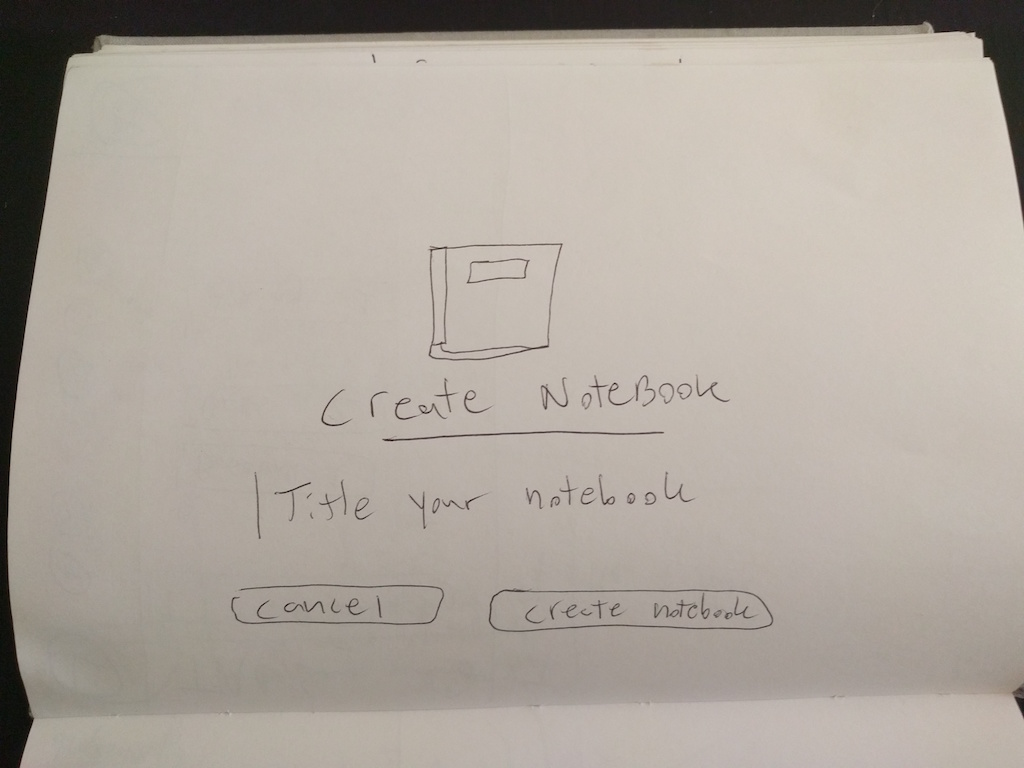 Create NoteBook
Title your notebook
cancel
create notebook